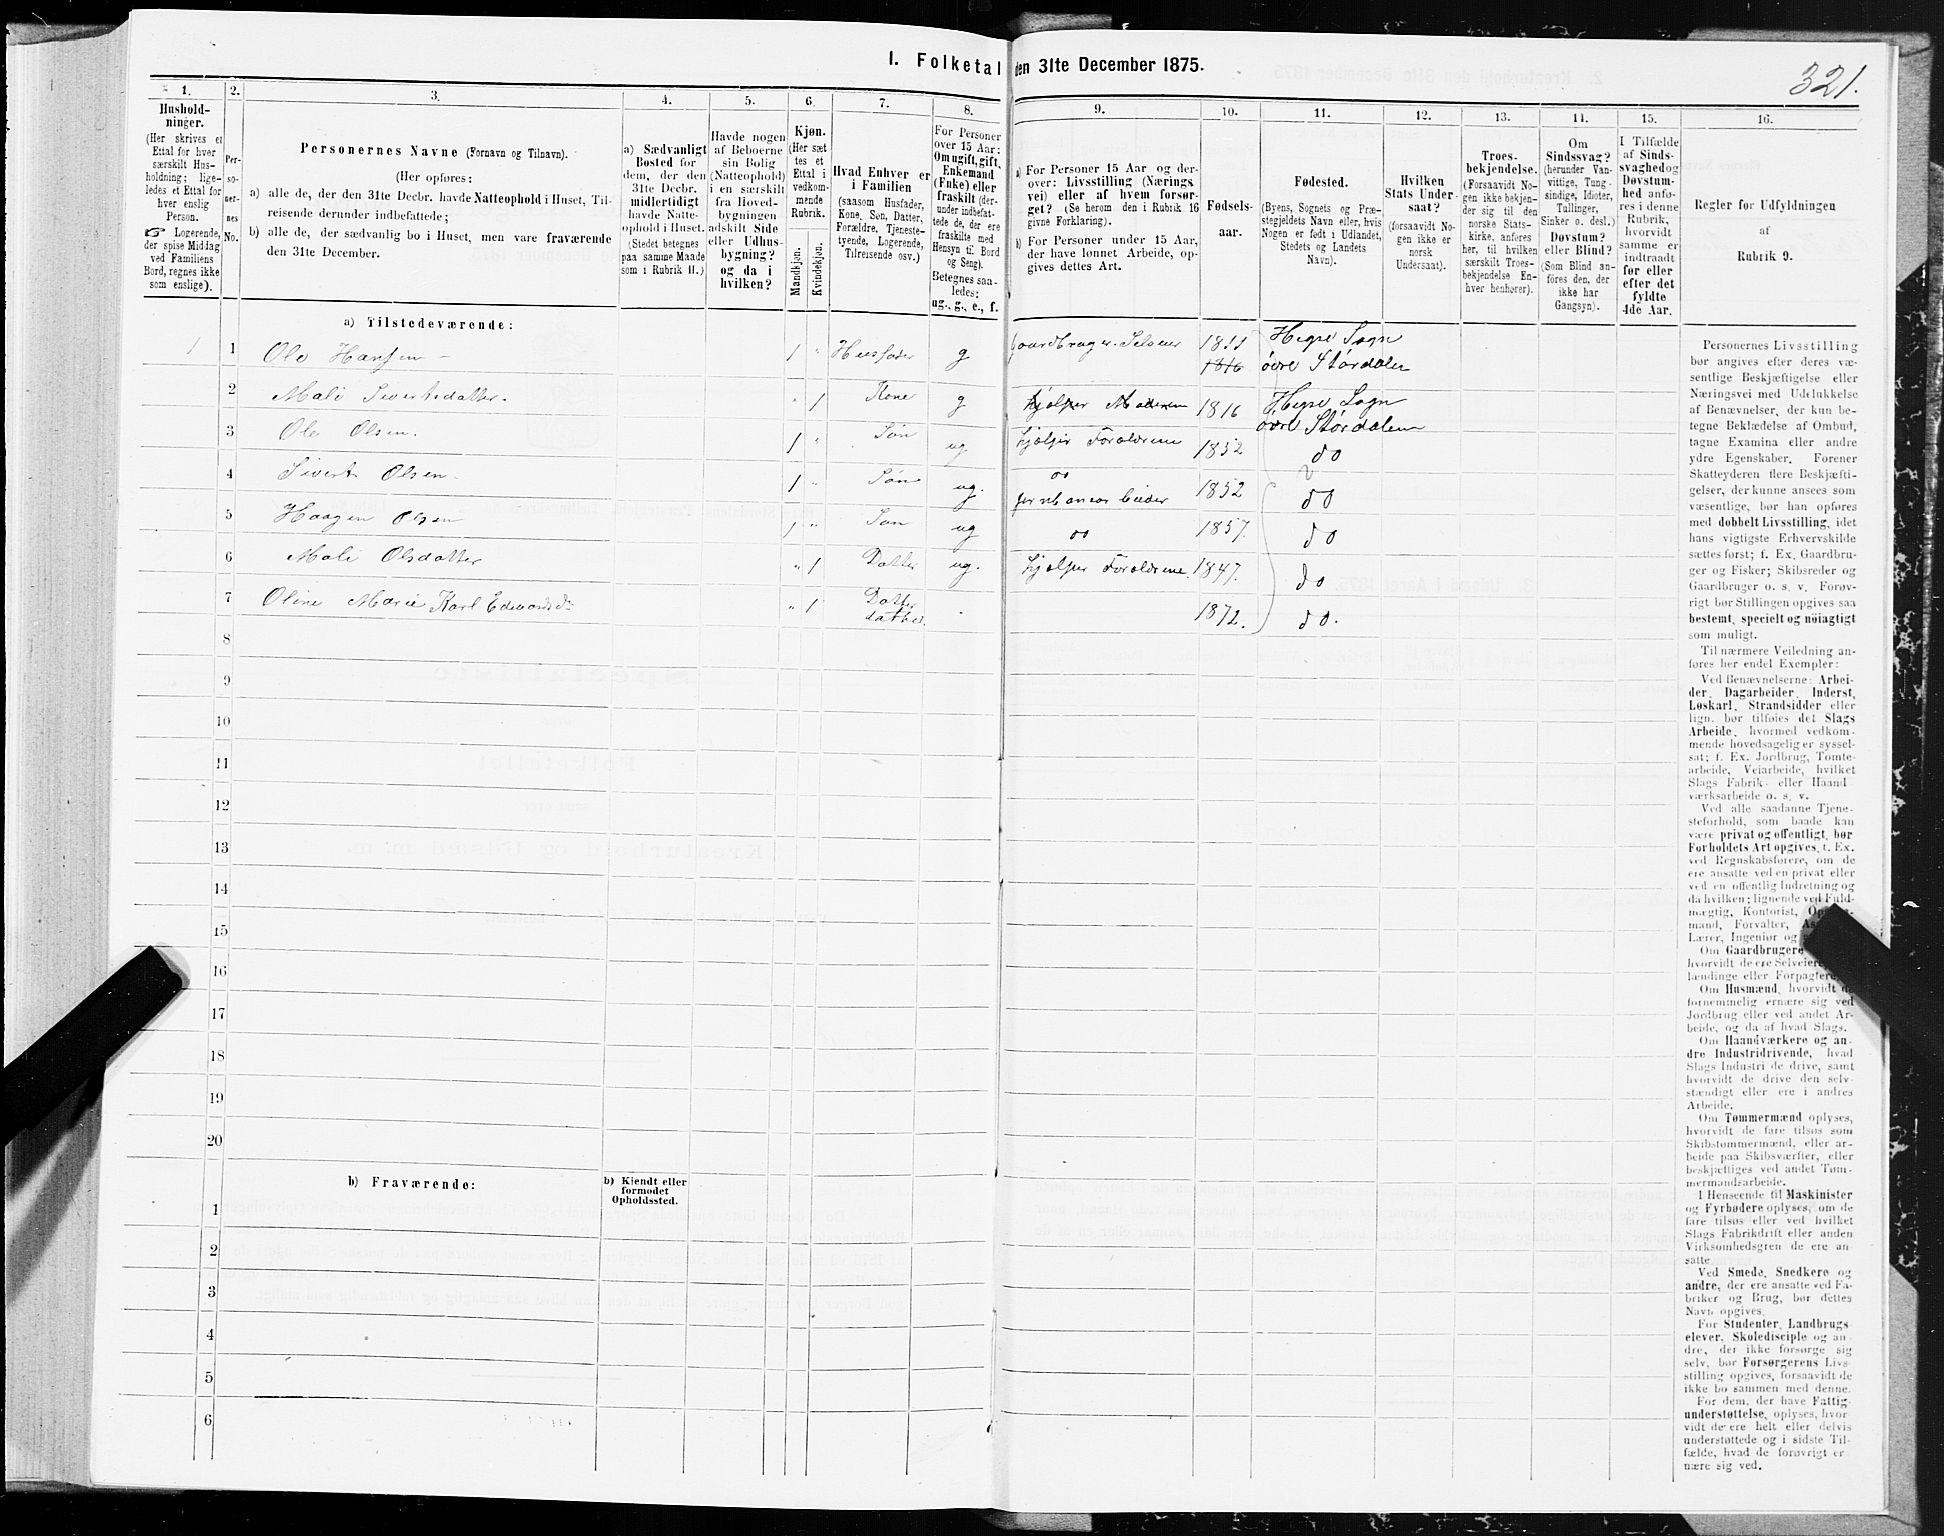 I. Folketal den 31te December 1875.
321.
1.
Hushold-
ninger.
(Her skrives et
Ettal for hver
særskilt Hus-
holdning; lige-
ledes et Ettal for
hver enslig
Person.
☞ Logerende,
der spise Middag
ved Familiens
Bord, regnes ikke
som enslige).
2.
Per-
so-
ner-
nes
No.
3.
Personernes Navne (Fornavn og Tilnavn).
(Her opføres:
a) alle de, der den 31te Decbr. havde Natteophold i Huset, Til-
reisende derunder indbefattede;
b) alle de, der sædvanlig bo i Huset, men vare fraværende
den 31te December.
4.
a) Sædvanligt
Bosted for
dem, der den
31te Decbr.
midlertidigt
havde Natte-
ophold i Huset.
(Stedet betegnes
paa samme Maade
som i Rubrik II.)
5.
Havde nogen
af Beboerne
sin Bolig
(Natteophold)
i en særskilt
fra Hoved-
bygningen
adskilt Side
eller Udhus-
bygning?
og da i
hvilken?
6.
Kjøn.
(Her sæt-
tes et
Ettal i
vedkom-
mende
Rubrik.
Mandkjøn.
Kvindekjøn.
7.
Hvad Enhver er
i Familien
(saasom Husfader,
Kone, Søn, Datter,
Forældre, Tjeneste-
tyende, Logerende,
Tilreisende osv.)
8.
For Personer
over 15 Aar:
Om ugift, gift,
Enkemand
(Enke) eller
fraskilt (der-
under indbefat-
tede de, der ere
fraskilte med
Hensyn til Bord
og Seng).
Betegnes saa-
ledes:
ug., g., e., f.
9.
a) For Personer 15 Aar og der-
over: Livsstilling (Nærings
vei) eller af hvem forsør-
get? (Se herom den i Rubrik 16
givne Forklaring).
b) For Personer under 15 Aar,
der have lønnet Arbeide, op-
gives dettes Art.
10.
Fødsels-
aar.
11.
Fødested.
(Byens, Sognets og Præ-
stegjeldets Navn eller, hvis
Nogen er født i Udlandet,
Stedets og Landets
Navn).
12.
Hvilken
Stats Under-
saat?
(forsaavidt No-
gen ikke er
norsk
Undersaat).
13.
Troes-
bekjendelse.
(Forsaavidt No-
gen ikke bekjen-
der sig til den
norske Stats-
kirke, anføres
her, til hvilken
særskilt Troes-
bekjendelse En-
hver henhører).
14.
Om
Sindssvag?
(herunder Van-
vittige, Tung-
sindige, Idioter,
Tullinger,
Sinker o. desl.)
Døvstum?
eller Blind?
(Som Blind an-
føres den, der
ikke har
Gangsyn).
15.
I Tilfælde
af Sinds-
svaghed og
Døvstum-
hed anfø-
res i denne
Rubrik,
hvorvidt
samme er
indtraadt
før eller
efter det
fyldte
4de Aar.
16.
Regler for Udfyldningen
af
Rubrik 9.
a) Tilstedeværende:
1 1 Ole Hansen - 1 " Husfader g Gaardbruger Selveier 1811 1816 Hegre Sogn øvre Størdalen
2 Mali Sivertsdatter. " 1 Kone g hjælper Manden 1816 Hegre Sogn øvre Størdalen
3 Ole Olsen. 1 " Søn ug hjælper Forældrene 1852 do
4 Sivert Olsen 1 " Søn ug. do jernbanearbeider 1852 do
5 Haagen Olsen 1 " Søn ug do 1857. do
6 Mali Olsdatter " 1 Datter ug. hjælper Forældrene. 1847. do
7 Oline Marie Karl Edevardsd: " 1 Datter datter. 1872. do.
8
9
10
11
12
13
14
15
16
17
18
19
20
b) Fraværende:
b) Kjendt eller
formodet
Opholdssted.
1
2
3
4
5
6
Personernes Livsstilling
bør angives efter deres væ-
sentlige Beskjæftigelse eller
Næringsvei med Udelukkelse
af Benævnelser, der kun be-
tegne Beklædelse af Ombud,
tagne Examina eller andre
ydre Egenskaber. Forener
Skatteyderen flere Beskjæfti-
gelser, der kunne ansees som
væsentlige, bør han opføres
med dobbelt Livsstilling, idet
hans vigtigste Erhvervskilde
sættes først; f. Ex. Gaardbru-
ger og Fisker; Skibsreder og
Gaardbruger o. s. v. Forøv-
rigt bør Stillingen opgives saa
bestemt, specielt og nöiagtigt
som muligt.
Til nærmere Veiledning an-
føres her endel Exempler:
Ved Benævnelserne: Arbei-
der, Dagarbeider, Inderst,
Løskarl, Strandsidder eller
lign. bør tilføies det Slags
Arbeide, hvormed vedkom-
mende hovedsagelig er syssel-
sat; f. Ex. Jordbrug, Tomte-
arbeide, Veiarbeide, hvilket
Slags Fabrik- eller Haand-
værksarbeide o. s. v.
Ved alle saadanne Tjene-
steforhold, som baade kan
være privat og offentligt, bør
Forholdets Art opgives, t. Ex.
ved Regnskabsførere, om de
ere ansatte ved en privat eller
ved en offentlig Indretning og
da hvilken; lignende ved Fuld-
mægtig, Kontorist,
mand, Forvalter,
Lærer, Ingeniør og
Om Gaardbrugere
hvorvidt de ere Selveiere,
lændinge eller Forpagtere.
Om Husmænd, hvorvidt de
fornemmelig ernære sig ved
Jordbrug eller ved andet Ar-
beide, og da af hvad Slags.
Om Haandværkere og an-
dre Industridrivende, hvad
Slags Industri de drive, samt
hvorvidt de drive den selv-
stændigt eller ere i andres
Arbeide.
Om Tømmermænd oplyses,
hvorvidt de fare tilsøs som
Skibstømmermænd, eller ar-
beide paa Skibsværfter, eller
beskjæftiges ved andet Tøm-
mermandsarbeide.
I Henseende til Maskinister
og Fyrbødere oplyses, om de
fare tilsøs eller ved hvilket
Slags Fabrikdrift eller anden
Virksomhedsgren de ere an-
satte.
Ved Smede, Snedkere og
andre, der ere ansatte ved Fa-
briker og Brug, bør dettes
Navn opgives.
For Studenter, Landbrugs-
elever, Skoledisciple og an-
dre, der ikke forsørge sig
selv, bør Forsørgerens Livs-
stilling opgives, forsaavidt de
ikke bo sammen med denne.
For dem, der have Fattig-
understøttelse, oplyses, hvor-
vidt de ere helt eller delvis
understøttede og i sidste Til-
fælde, hvad de forøvrigt er-
nære sig ved.